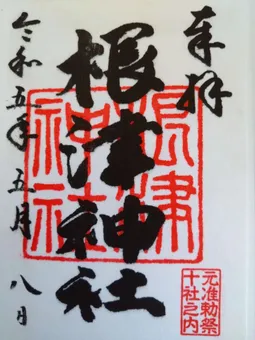 奉拝
根津神社
令和五年五月八日
根津神社
元准勅祭
十社之内